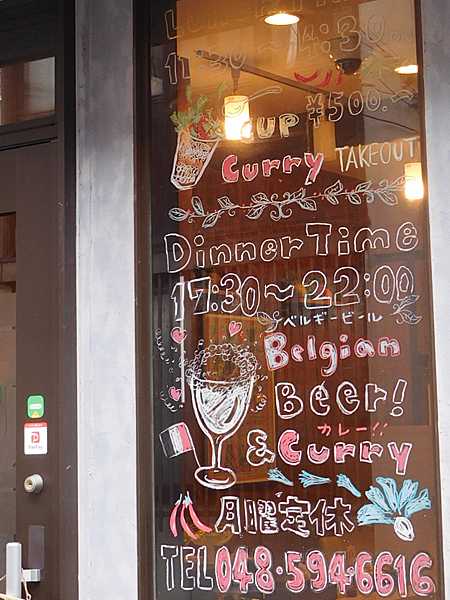 Lunch Time
11:30~14:30.
CUP ¥500.~
Curry TAKEOUT
Dinner Time
17:30~22:00
ベルギービール
Belgian
Beer!
カレー!!
&Curry
月曜定休
TEL 048-594-6616
PayPay